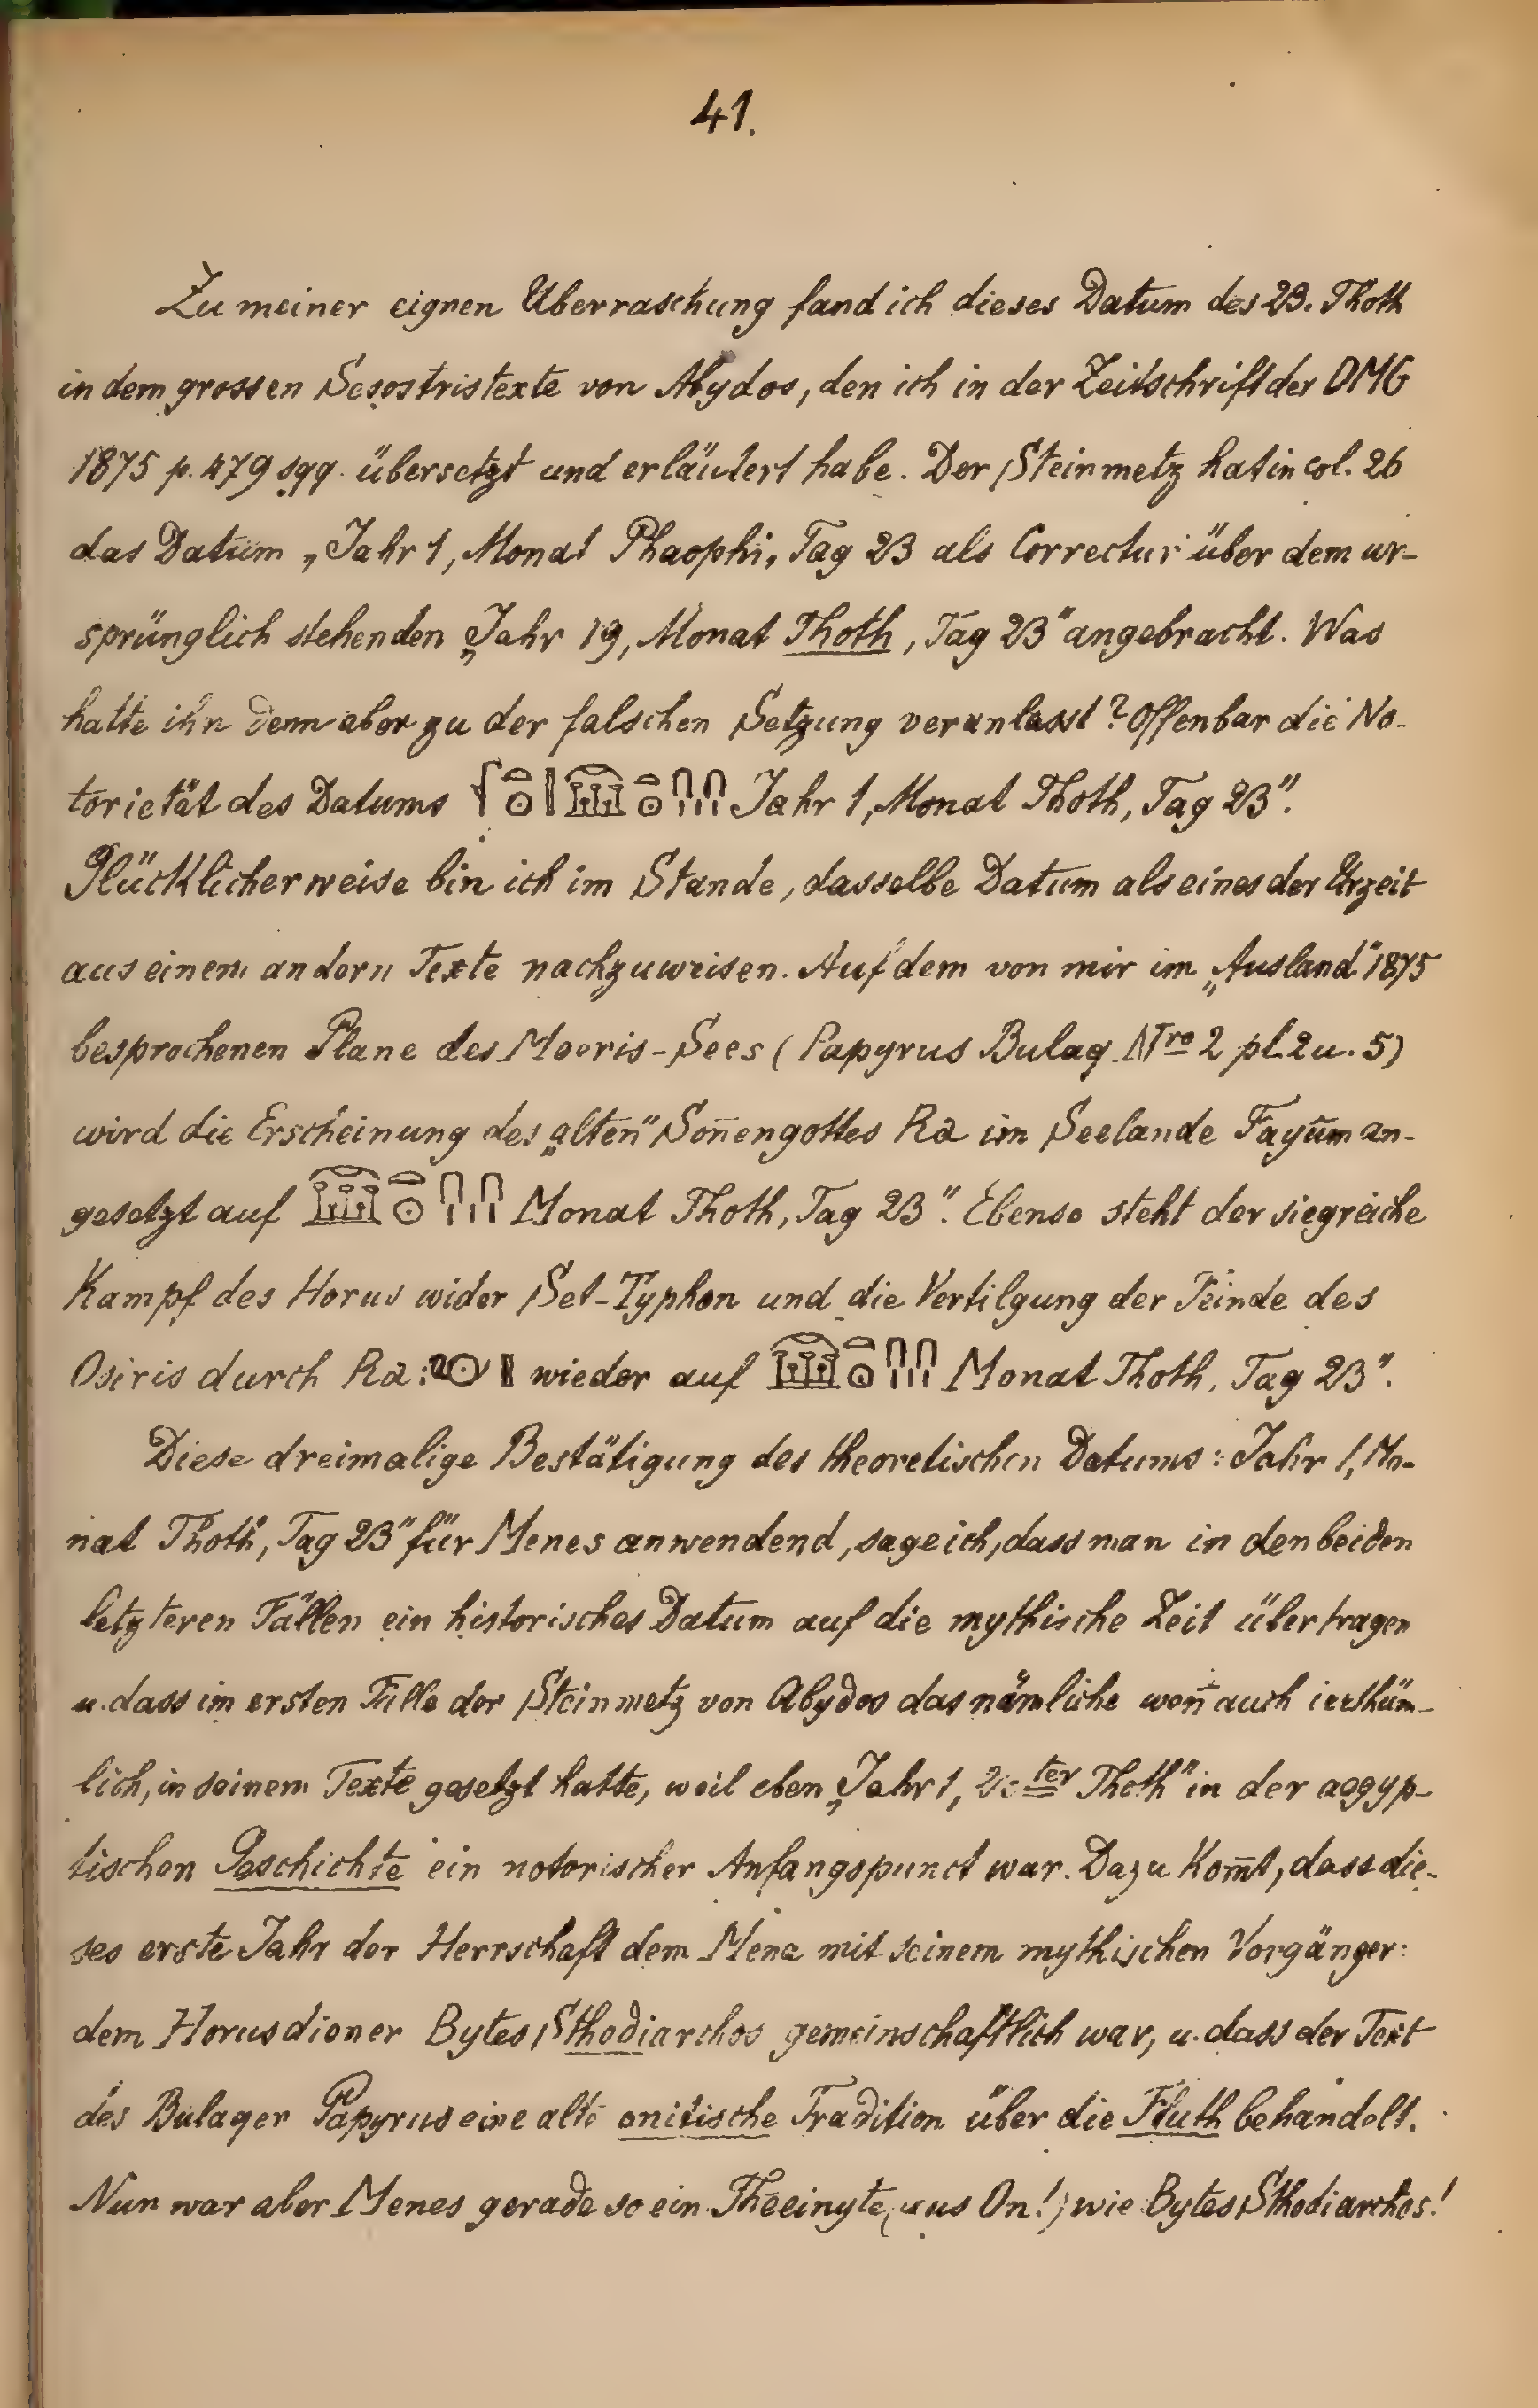 41.
Zu meiner eignen Überraschung fand ich dieses Datum des 23. Thoth
in dem grossen Sesostristexte von Abydos, den ich in der Zeitschrift der DMG
1875 p. 479 sqq. übersetzt und erläutert habe. Der Steinmetz hat in col. 26
das Datum „Jahr 1, Monat Phaophi, Tag 23 als Correctur über dem ur-
sprünglich stehenden „Jahr 19, Monat Thoth, Tag 23" angebracht. Was
hatte ihn denn aber zu der falschen Setzung veranlasst? Offenbar die No-
torietät des Datums Jahr 1, Monat Thoth, Tag 23".
Glücklicherweise bin ich im Stande, dasselbe Datum als eines der Urzeit
aus einem andern Texte nachzuweisen. Auf dem von mir im „Ausland" 1875
besprochenen Plane des Moeris-Sees (Papyrus Bulaq Nro 2 pl. 2 u. 5)
wird die Erscheinung des „alten" Son̄engottes Ra im Seelande Fayūm an-
gesetzt auf Monat Thoth, Tag 23". Ebenso steht der siegreiche
Kampf des Horus wider Set-Typhon und die Vertilgung der Feinde des
Osiris durch Ra: wieder auf Monat Thoth, Tag 23".
Diese dreimalige Bestätigung des theoretischen Datums: Jahr 1, Mo-
nat Thoth, Tag 23" für Menes anwendend, sage ich, dass man in den beiden
letzteren Fällen ein historisches Datum auf die mythische Zeit übertragen
u. dass im ersten Fälle der Steinmetz von Abydos das nämliche wen̄ auch irrthüm-
lich, in seinem Texte gesetzt hatte, weil eben „Jahr 1, ter Thoth" in der aegyp-
tischen Geschichte ein notorischer Anfangspunct war. Dazu kom̄t, dass die-
ses erste Jahr der Herrschaft dem Mena mit seinem mythischen Vorgänger:
dem Horusdiener Bytes Sthodiarchos gemeinschaftlich war, u. dass der Text
des Bulaqer Papyrus eine alte onitische Tradition über die Fluth behandelt.
Nun war aber Menes gerade so ein Theeinyte (aus On!) wie Bytes Sthodiarchos!